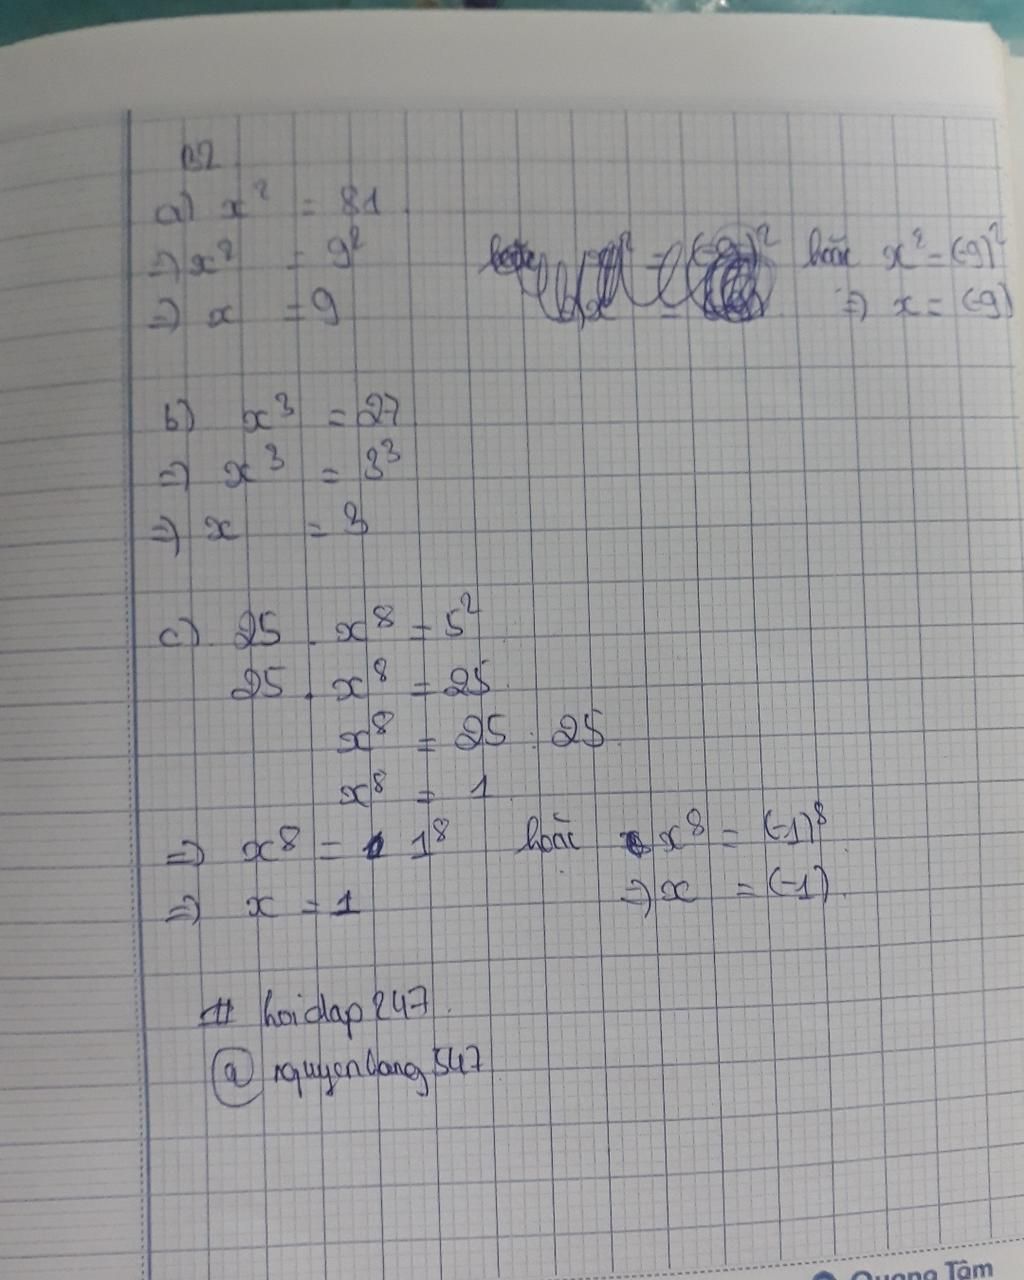 B2
a) x² = 81
=) x² = 9² hoặc x² = (-9)²
=) x = 9 =) x = (-9)
b) x³ = 27
=) x³ = 3³
=) x = 3
c) 25 . x⁸ = 5²
25 . x⁸ = 25
x⁸ = 25 : 25
x⁸ = 1
=) x⁸ = 1⁸ hoặc x⁸ = (-1)⁸
=) x = 1 =) x = (-1).
# hoidap247.
@ nguyenvang547
Quang Tâm